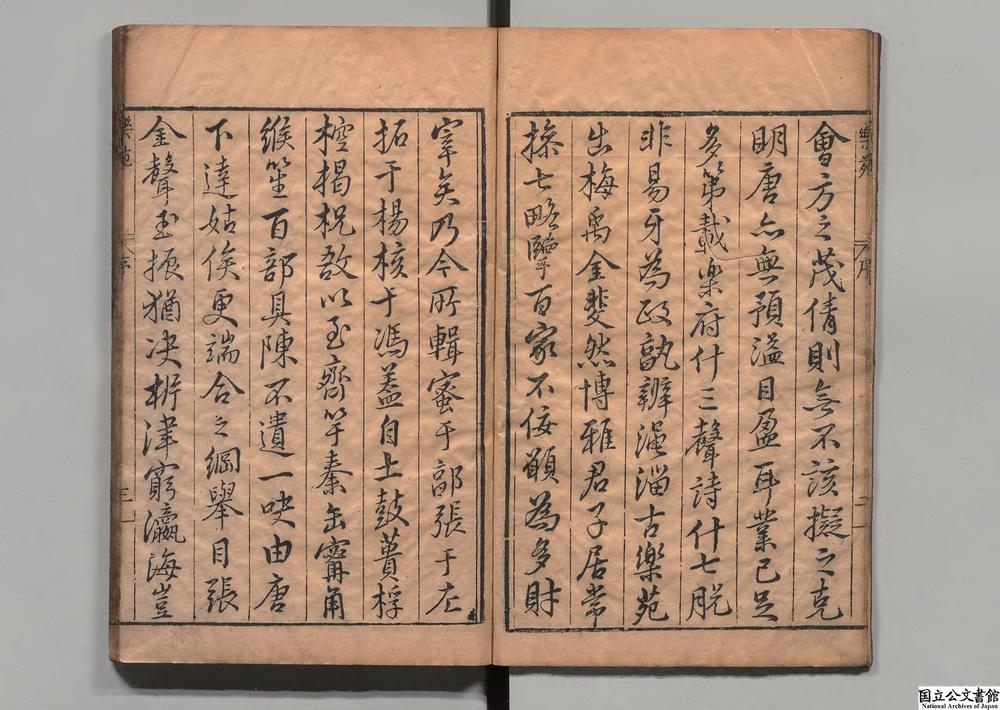 會方之茂倩則無不該擬之克
明唐亦無預溢目盈耳業已足
多第載樂府什三聲詩什七脫
非易牙為政孰辨澠淄古樂苑
出梅禹金斐然博雅君子居常
操七略擥百家不佞顧為多財
宰矣乃今所輯蜜于郭張于左
拓于楊核于馮蓋自土鼓蕢桴
椌楬柷敔以至齊竽秦缶甯角
緱笙百部具陳不遺一吷由唐
下達姑俟更端合之綱舉目張
金聲玉振猶决析津窮瀛海豈
樂苑
序
二
樂苑
序
三
国立公文書館
National Archives of Japan